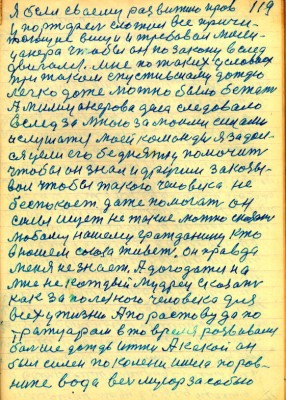 119
Я были своему развитию пров
и по
и требовал мили
ционера чтобы он по закону вслед
двигался. мне по таких условах
при таком спустившему дождю
легко даже можно было бежать
А милицанерова дела следовало
вслед за мною за моими силами
и слушать моей команды Я задал
ся цели его беднягу помочить
чтобы он знал и другим заказы
вал чтобы такого человека не
беспокоет даже помогат он
силы ищет не такие можно сказать
любому нашему гражданину кто
в нашем союза живет. он правда
меня не знает. А догодатца на
мне не каждый мудрец сказать
как за полезного человека для
всех у жизни А по растову да по
тратуарам в то время развивалу
больше дождь итти А какой он
был силен по колени имела поров
нике вода весь мусор за собою